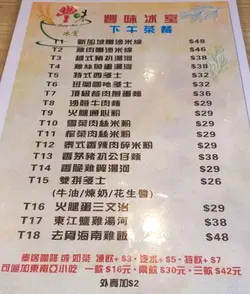 豐味
冰室
豐味冰室
下午茶餐
T1 新加坡喇沙米線 $48
T2 雞肉喇沙米線 $46
T3 越式豬扒湯河 $38
T4 雞絲撈湯河 $38
T5 特式西多士 $32
T6 班蘭咖吔多士 $32
T7 頂級餐肉煎蛋麵 $36
T8 沙爹牛肉麵 $29
T9 火腿通心粉 $29
T10 雪菜肉絲米粉 $29
T11 榨菜肉絲米粉 $29
T12 泰式香辣肉碎米粉 $29
T13 香茅豬扒公仔麵 $38
T14 香脆雞翼湯河 $29
T15 雙拼多士 $26
(牛油/煉奶/花生醬)
T16 火腿蛋三文治 $29
T17 東江鹽雞湯河 $38
T18 去骨海南雞飯 $48
奉送咖啡 或 奶茶 凍飲+$3,汽水+$5,特飲+$7
可追加東南亞小吃 一款$16元,兩款$30元,三款$42元
外賣加$2